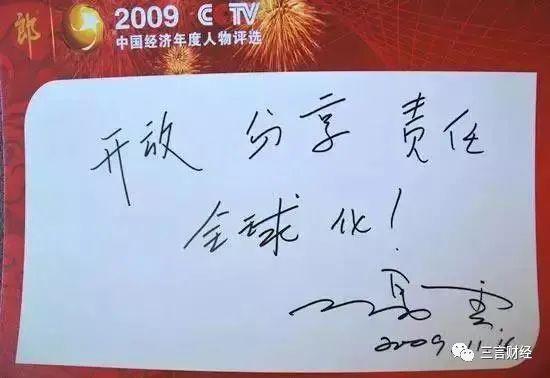 郎
2009 CCTV
中国经济年度人物评选
开放 分享 责任
全球化!
马云
2009.11.16
三言财经